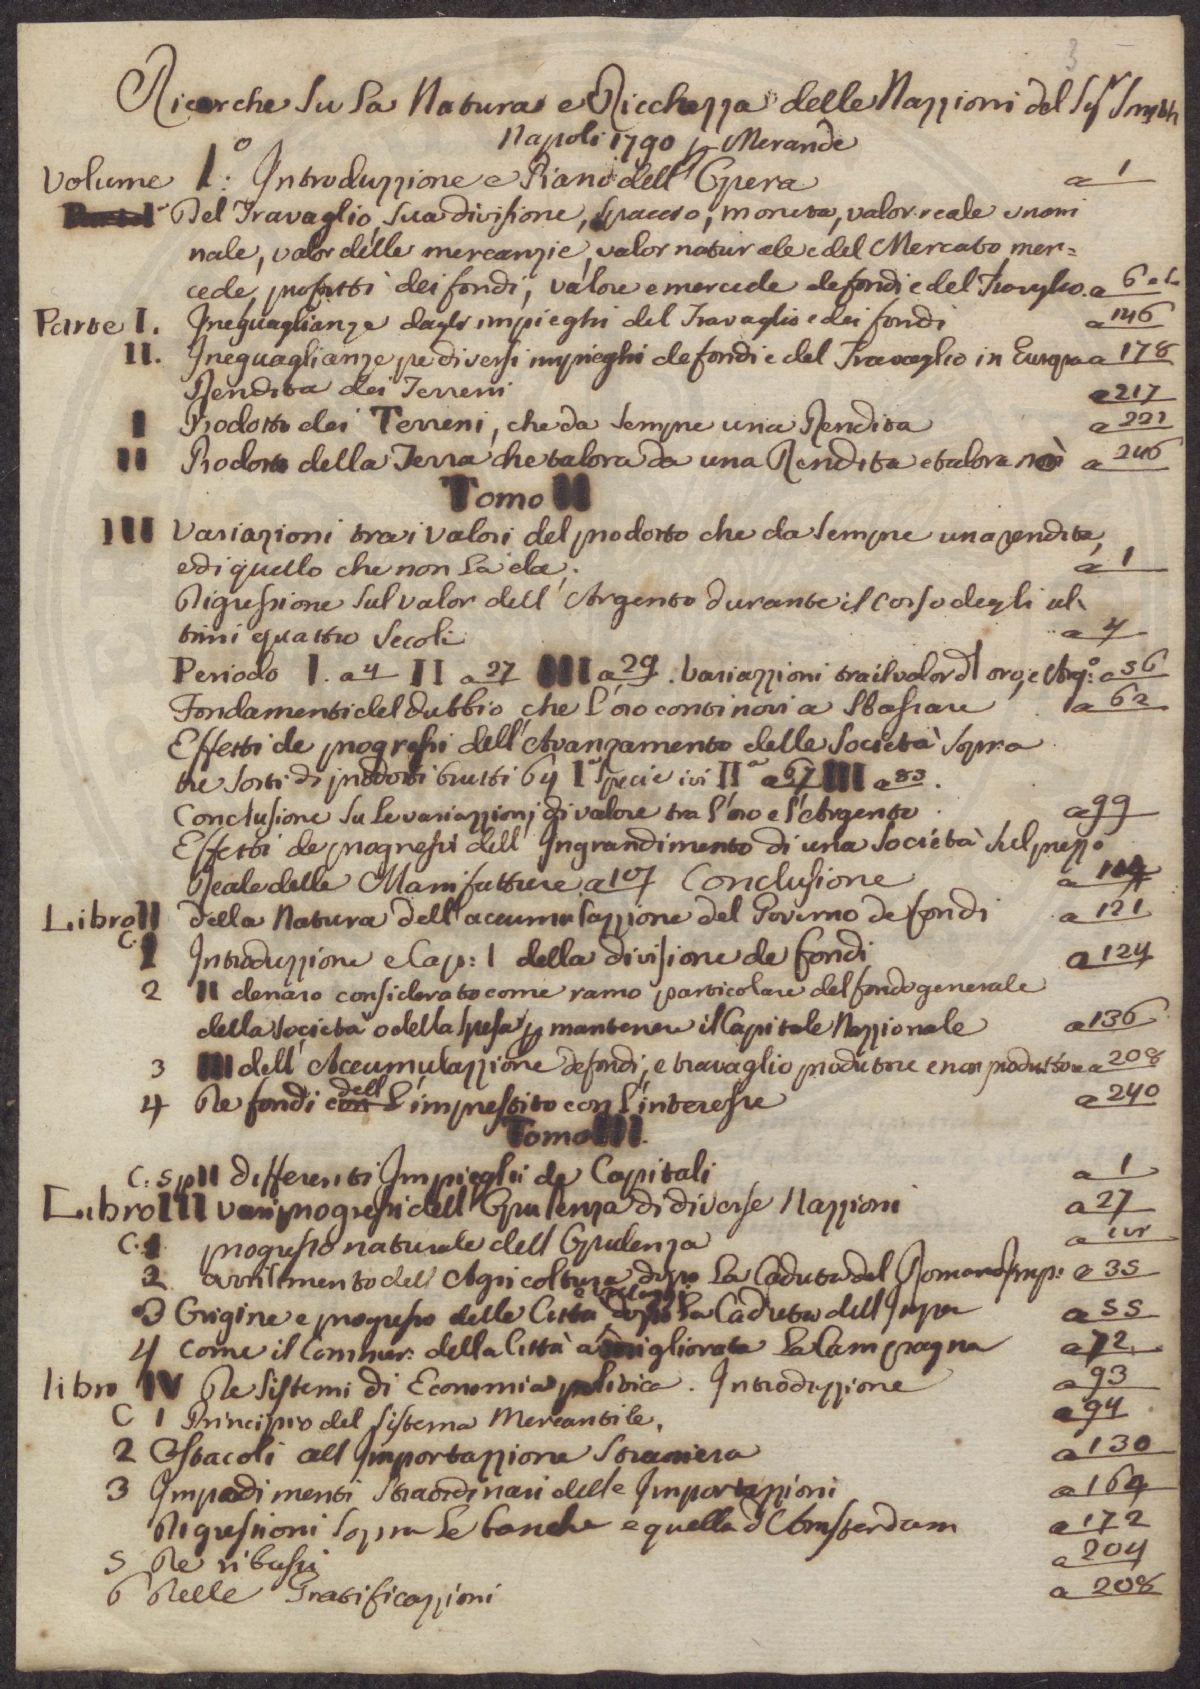 3
Ricerche su la Natura e Ricchezza delle Nazzioni del Sigr Smyth
Napoli 1790 p Merande
Volume 1º: Introduzzione e Piano dell'Opera a 1
Del Travaglio, sua divisione, spaccio, moneta, valor reale e nomi
nale, valor delle mercanzie, valor naturale e del Mercato, mer=
cede, profitti dei fondi, valore e mercede de fondi e del Travaglio. a 6 a
Parte I. Ineguaglianze dagl'impieghi del Travaglio e dei fondi a 146
II. Ineguaglianze pe diversi impieghi de fondi e del Travaglio in Europa a 178
Rendita dei Terreni a 217
I Prodotto dei Terreni, che da sempre una Rendita a 221
II Prodotto della Terra che talora da una Rendita e talora nò a 246
Tomo II
III Variazioni tra i valori del prodotto che da sempre una rendita,
e di quello che non la da, a 1
Digressione sul valor dell'Argento durante il corso degli ul-
timi quattro secoli a 4
Periodo I. a 4 II a 27 III a 29. Variazzioni tra il valor dl oro, e Argº: a 56
Fondamenti del dubbio che l'oro continovi a sbassare a 62
Effetti de progressi dell'Avanzamento delle Società sopra
tre sorti di prodotti brutti 64 Iª specie ivi IIª a 67 III a 83.
Conclusione su le variazzioni di valore tra l'oro e l'Argento a 99
Effetti de progressi dell'Ingrandimento di una Società sul prezzo
Reale delle Manifatture a 107 Conclusione a 114
Libro II della Natura dell'accumulazzione del Governo de fondi a 121
C. 1 Introduzzione e Cap: I della divisione de fondi a 124
2 II denaro considerato come ramo particolare del fondo generale
della società o della spesa p mantenere il Capitale Nazzionale a 136
3 III dell'Accumulazzione de fondi, e travaglio produttore e non produttore a 208
4 De fondi con dell l'imprestito con l'interesse a 240
Tomo III.
C. 5 p II differenti Impieghi de Capitali a 1
Libro III varj progressi dell'Opulenza di diverse Nazzioni a 27
C. 1 progresso naturale dell'Opulenza a ivi
2 avvilimento dell'Agricoltura dopo la Caduta del Romano Imp: a 35
3 Origine e progresso delle Città e villaggi dopo la Caduta dell'Impero a 55
4 Come il Commer: della Città à migliorata la Campagna a 72
libro IV De sistemi di Economia politica. Introduzzione a 93
C 1 Principio del sistema Mercantile, a 94
2 Ostacoli all'Importazzione straniera a 130
3 Impedimenti straordinari delle Importazzioni a 164
Digressioni sopra le banche e quella d'Amsterdam a 172
5 De ribassi a 204
6 Delle Gratificazzioni a 208